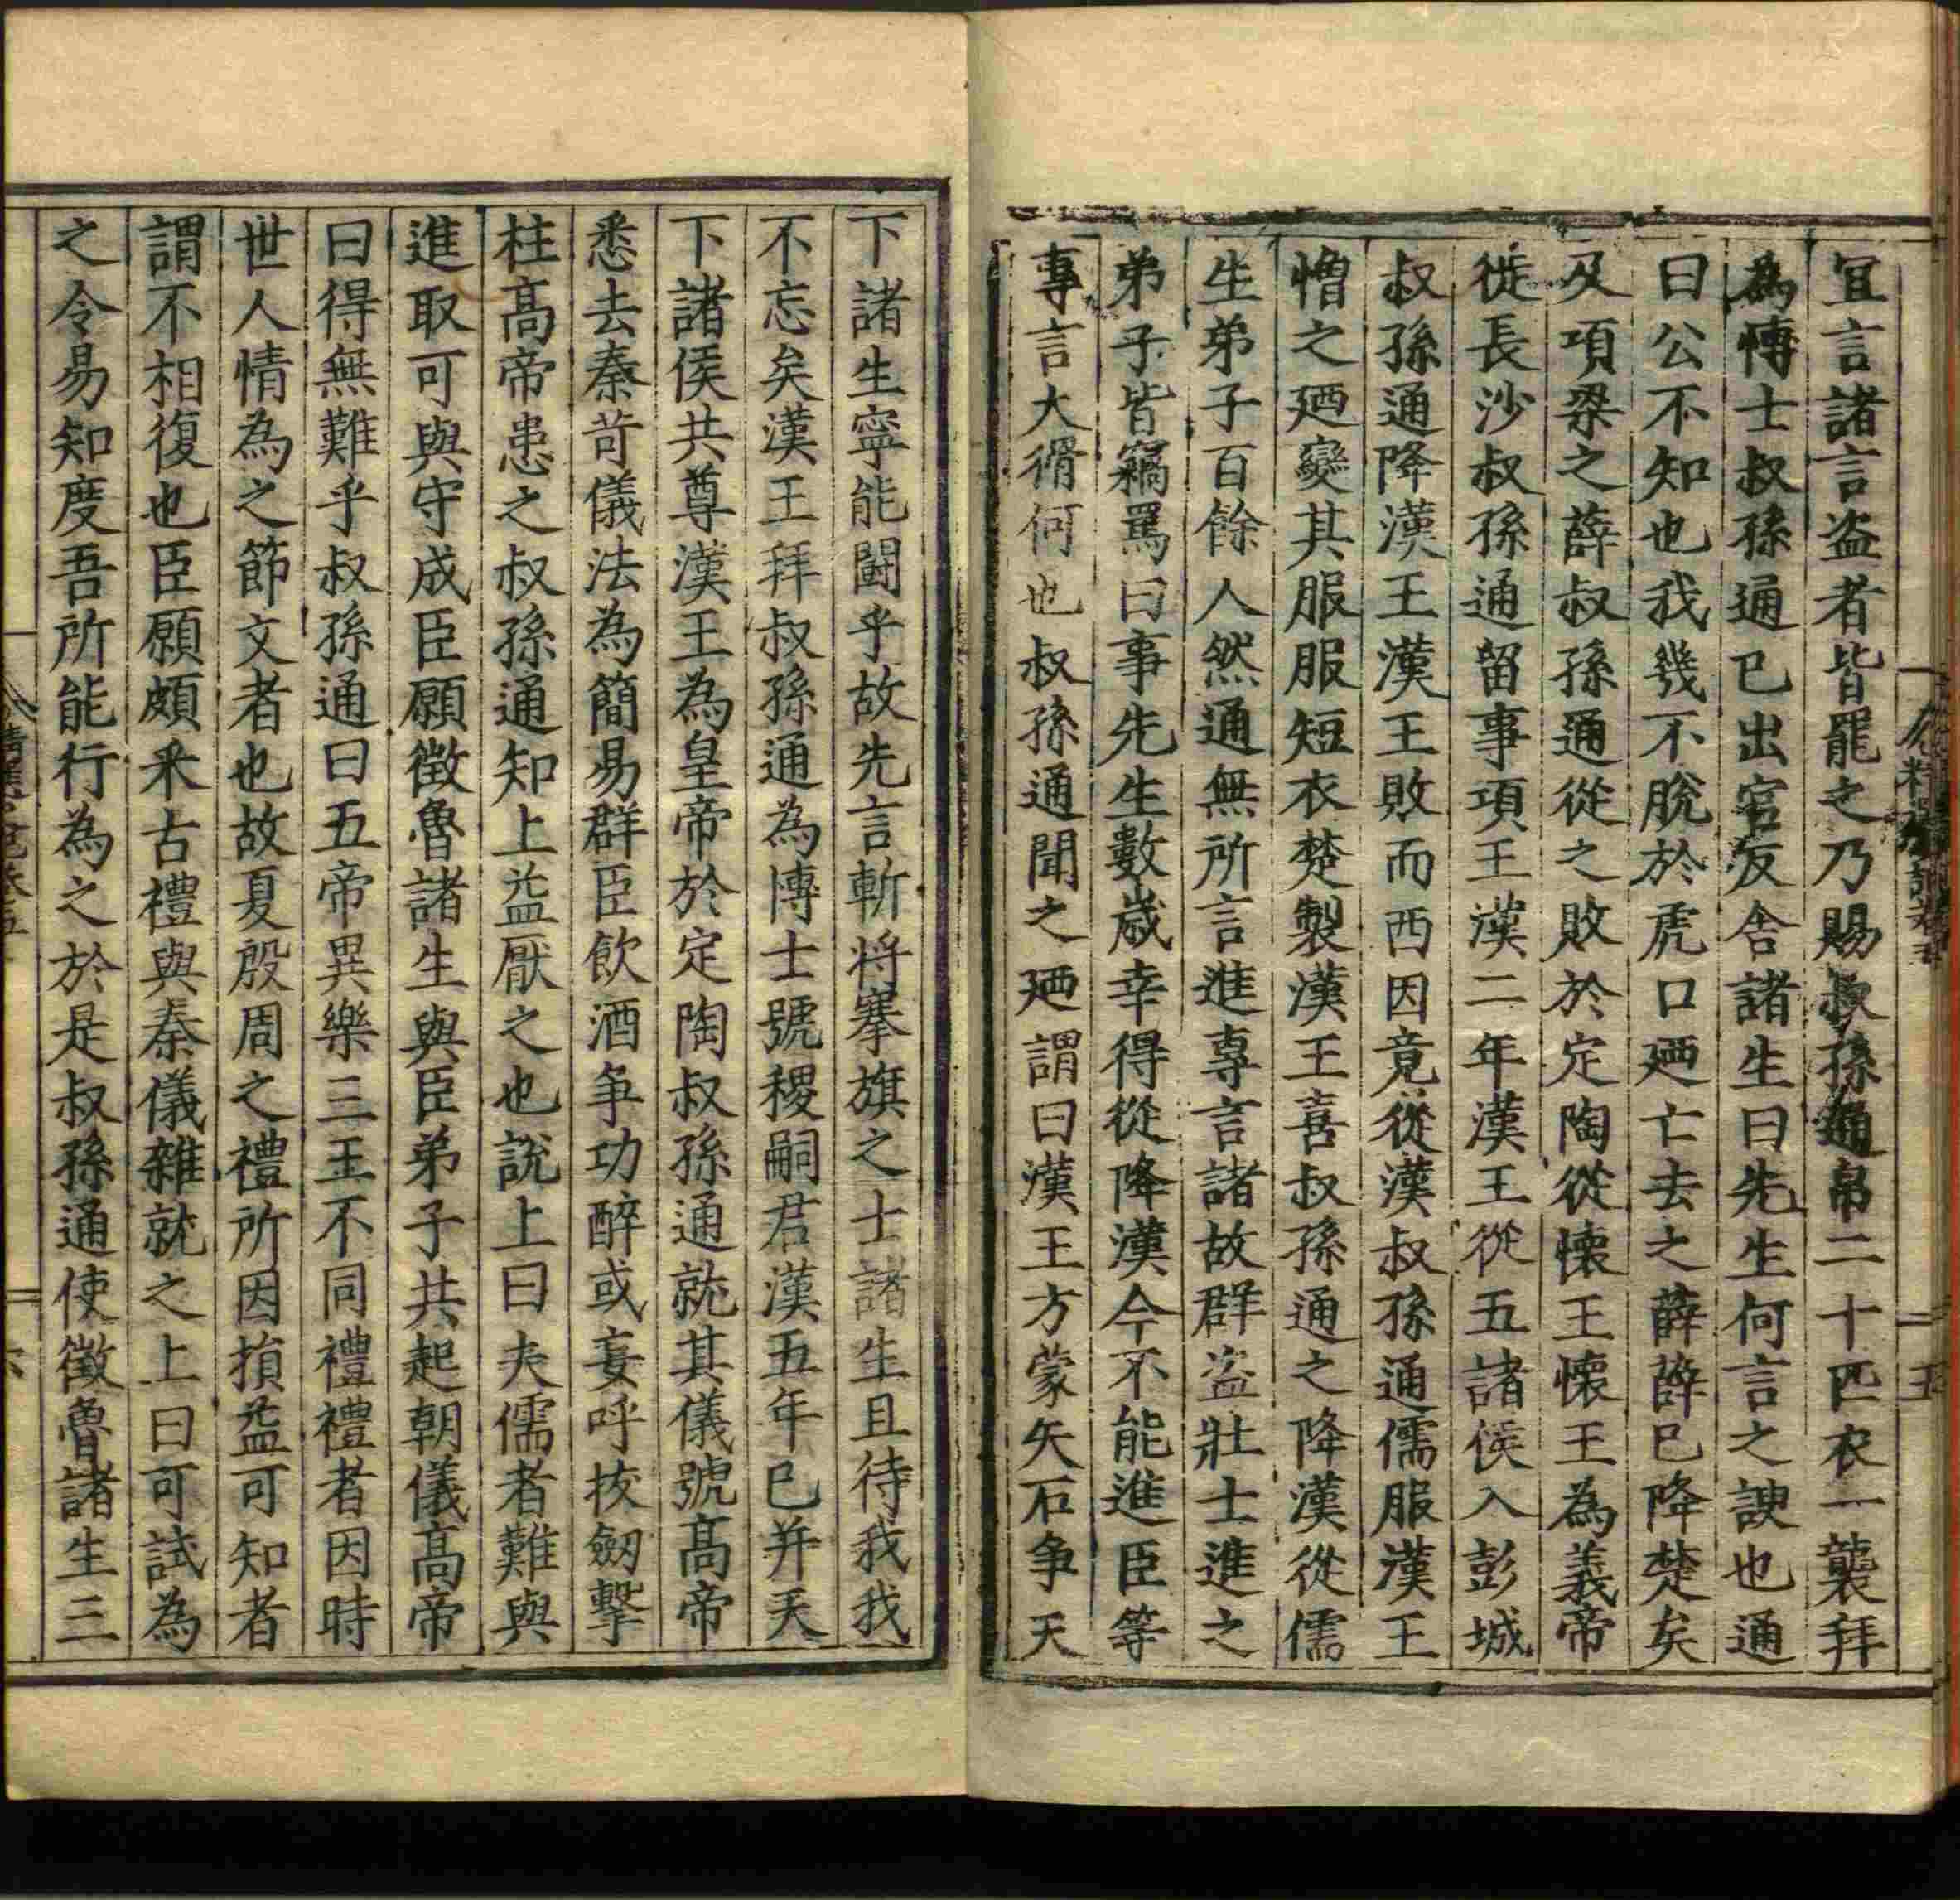 宜言諸言盗者皆罷之乃賜叔孫通帛二十匹衣一襲拜
為博士叔孫通已出宮反舎諸生曰先生何言之諛也通
曰公不知也我幾不脫於虎口廼亡去之薛薛已降楚矣
及項梁之薛叔孫通從之敗於定陶從懷王懷王為義帝
徙長沙叔孫通留事項王漢二年漢王從五諸侯入彭城
叔孫通降漢王漢王敗而西因竟從漢叔孫通儒服漢王
憎之廼變其服服短衣楚製漢王喜叔孫通之降漢從儒
生弟子百餘人然通無所言進專言諸故群盗壯士進之
弟子皆竊罵曰事先生數歲幸得從降漢今不能進臣等
專言大猾何也叔孫通聞之廼謂曰漢王方蒙矢石争天
下諸生寧能鬪乎故先言斬将搴旗之士諸生且待我我
不忘矣漢王拜叔孫通為博士號稷嗣君漢五年已并天
下諸侯共尊漢王為皇帝於定陶叔孫通就其儀號高帝
悉去秦苛儀法為簡易群臣飲酒争功醉或妄呼抜劔擊
柱高帝患之叔孫通知上益厭之也說上曰夫儒者難與
進取可與守成臣願徵魯諸生與臣弟子共起朝儀高帝
曰得無難乎叔孫通曰五帝異樂三王不同禮禮者因時
世人情為之節文者也故夏殷周之禮所因損益可知者
謂不相復也臣願頗采古禮與秦儀雜就之上曰可試為
之令易知度吾所能行為之於是叔孫通使徵魯諸生三